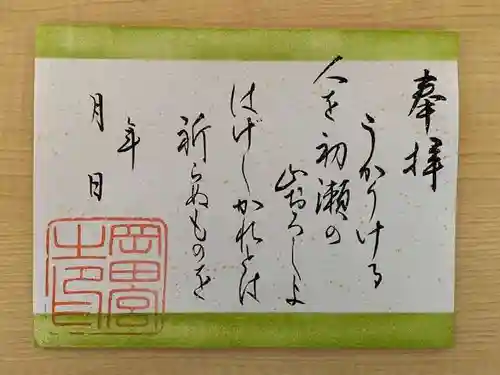 奉拝
うかりける
人を初瀬の
山おろしよ
はげしかれとは
祈らぬものを
年
月 日
岡田宮
士印